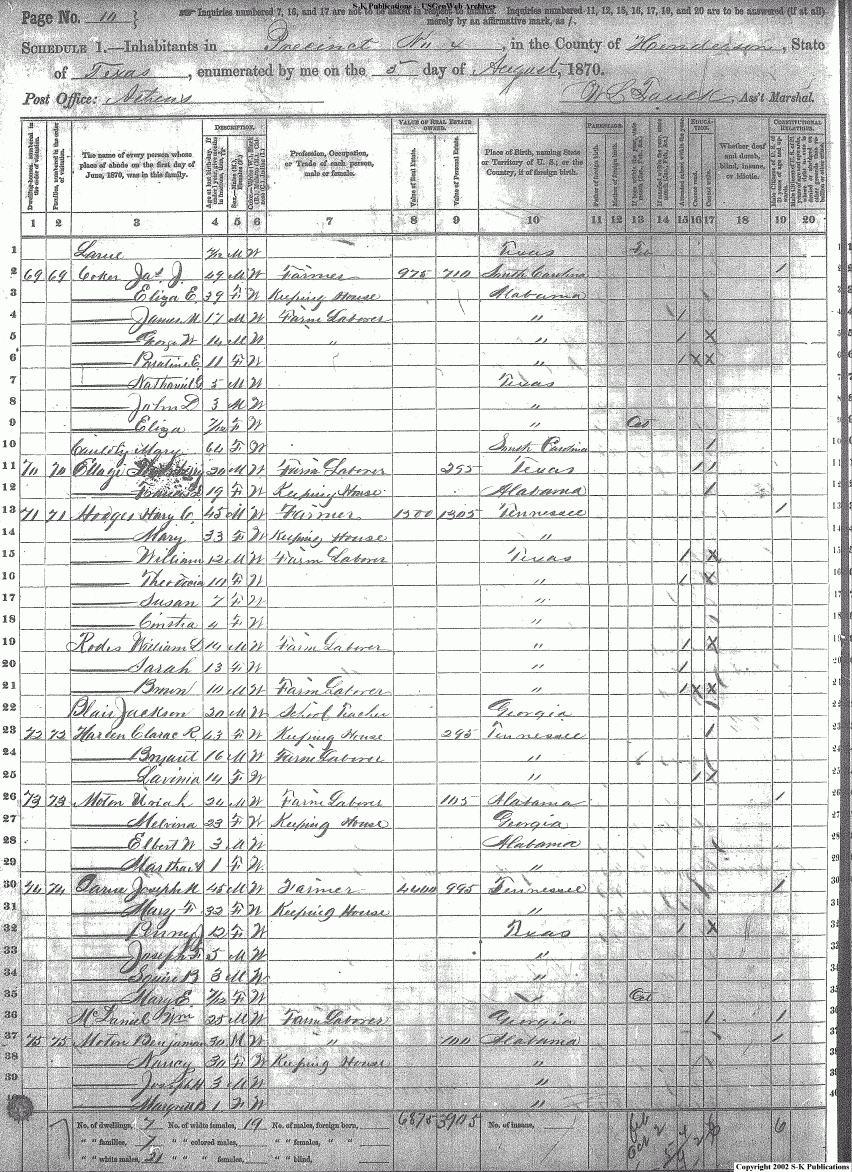 S-K Publications : USGenWeb Archives
Page No. 10
Inquiries numbered 7, 16, and 17 are not to be asked in respect to infants. Inquiries numbered 11, 12, 15, 16, 17, 19, and 20 are to be answered (if at all) merely by an affirmative mark, as /.
SCHEDULE 1.—Inhabitants in Precinct No 4, in the County of Henderson, State
of Texas, enumerated by me on the 5 day of August, 1870.
Post Office: Athens W L Faulk, Ass't Marshal.
Dwelling-houses, numbered in the order of visitation.
Families, numbered in the order of visitation.
The name of every person whose place of abode on the first day of June, 1870, was in this family.
DESCRIPTION.
Profession, Occupation, or Trade of each person, male or female.
VALUE OF REAL ESTATE OWNED.
Value of Real Estate.
Value of Personal Estate.
Place of Birth, naming State or Territory of U. S.; or the Country, if of foreign birth.
PARENTAGE.
Father of foreign birth.
Mother of foreign birth.
Attended school within the year.
EDUCATION.
Cannot read.
Cannot write.
Whether deaf and dumb, blind, insane, or idiotic.
CONSTITUTIONAL RELATIONS.
1 2 3 4 5 6 7 8 9 10 11 12 13 14 15 16 17 18 19 20
1 M W Texas
2 69 69 Coker Jas. J. 49 M W Farmer 975 710 South Carolina /
3 —— Eliza E. 39 F W Keeping House Alabama
4 —— James M. 17 M W Farm Laborer " /
5 —— George W 14 M W " " / X
6 —— E. 11 F W " / X X
7 —— Nathaniel G 5 M W Texas
8 —— John D 3 M W "
9 —— Eliza 7/12 F W " Oct
10 Mary 64 F W South Carolina /
11 70 70 20 M W Farm Laborer 295 Texas / /
12 —— 19 F W Keeping House Alabama /
13 71 71 Hodges C. 45 M W Farmer 1300 1305 Tennessee /
14 —— Mary 33 F W Keeping House "
15 —— William 12 M W Farm Laborer Texas / X
16 —— 10 F W " / X
17 —— Susan 7 F W "
18 —— 4 F W "
19 Rodes William L 14 M W Farm Laborer " / X
20 —— Sarah 13 F W " /
21 —— Brown 10 M W Farm Laborer " / X X
22 Blair Jackson 20 M W School Teacher Georgia
23 72 72 Harden R. 43 F W Keeping House 295 Tennessee /
24 —— Bryant 16 M W Farm Laborer "
25 —— Lavinia 14 F W " / X
26 73 73 Moton Uriah 24 M W Farm Laborer 105 Alabama /
27 —— Melvina 23 F W Keeping House Georgia
28 —— Elbert W 3 M W Alabama
29 —— Martha 1 F W "
30 74 74 Joseph 45 M W Farmer 4400 995 Tennessee /
31 —— Mary F. 32 F W Keeping House "
32 —— 12 F W Texas / X
33 —— Joseph 5 M W "
34 —— Squire B 3 M W "
35 —— Mary E. F W " Oct
36 McDaniel Wm 25 M W Farm Laborer Georgia / /
37 75 75 Moton Benjaman 30 M W " 100 Alabama /
38 —— Nancy 30 F W Keeping House "
39 —— Joseph H 3 M W "
40 —— 1 F W "
No. of dwellings, 7 No. of white females, 19 No. of males, foreign born, 6875 3905 No. of insane, 6
" " families, 7 " " colored males, " " females, "
" " white males, 21 " " " females, " " blind,
Copyright 2002 S-K Publications